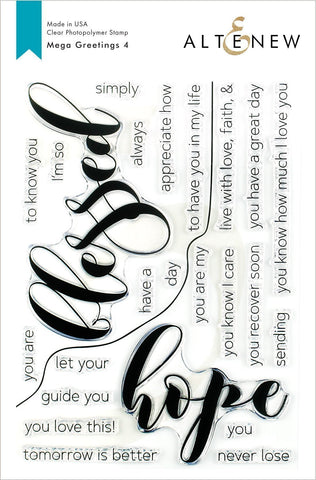 Made in USA
Clear Photopolymer Stamp
Mega Greetings 4
ALTENEW
simply
to know you
I'm so
always
appreciate how
to have you in my life
live with love, faith, &
you have a great day
you know how much I love you
blessed
have a
day
you are my
you know I care
you recover soon
sending
you are
let your
guide you
you love this!
tomorrow is better
hope
you
never lose